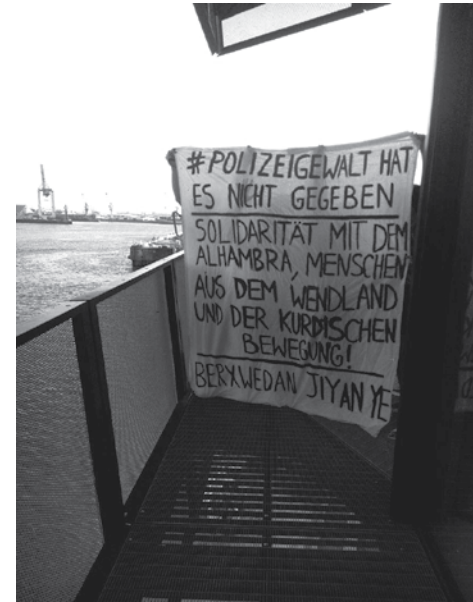 #POLIZEIGEWALT HAT
ES NICHT GEGEBEN
SOLIDARITÄT MIT DEM
ALHAMBRA, MENSCHEN
AUS DEM WENDLAND
UND DER KURDISCHEN
BEWEGUNG!
BERXWEDAN JIYAN YE